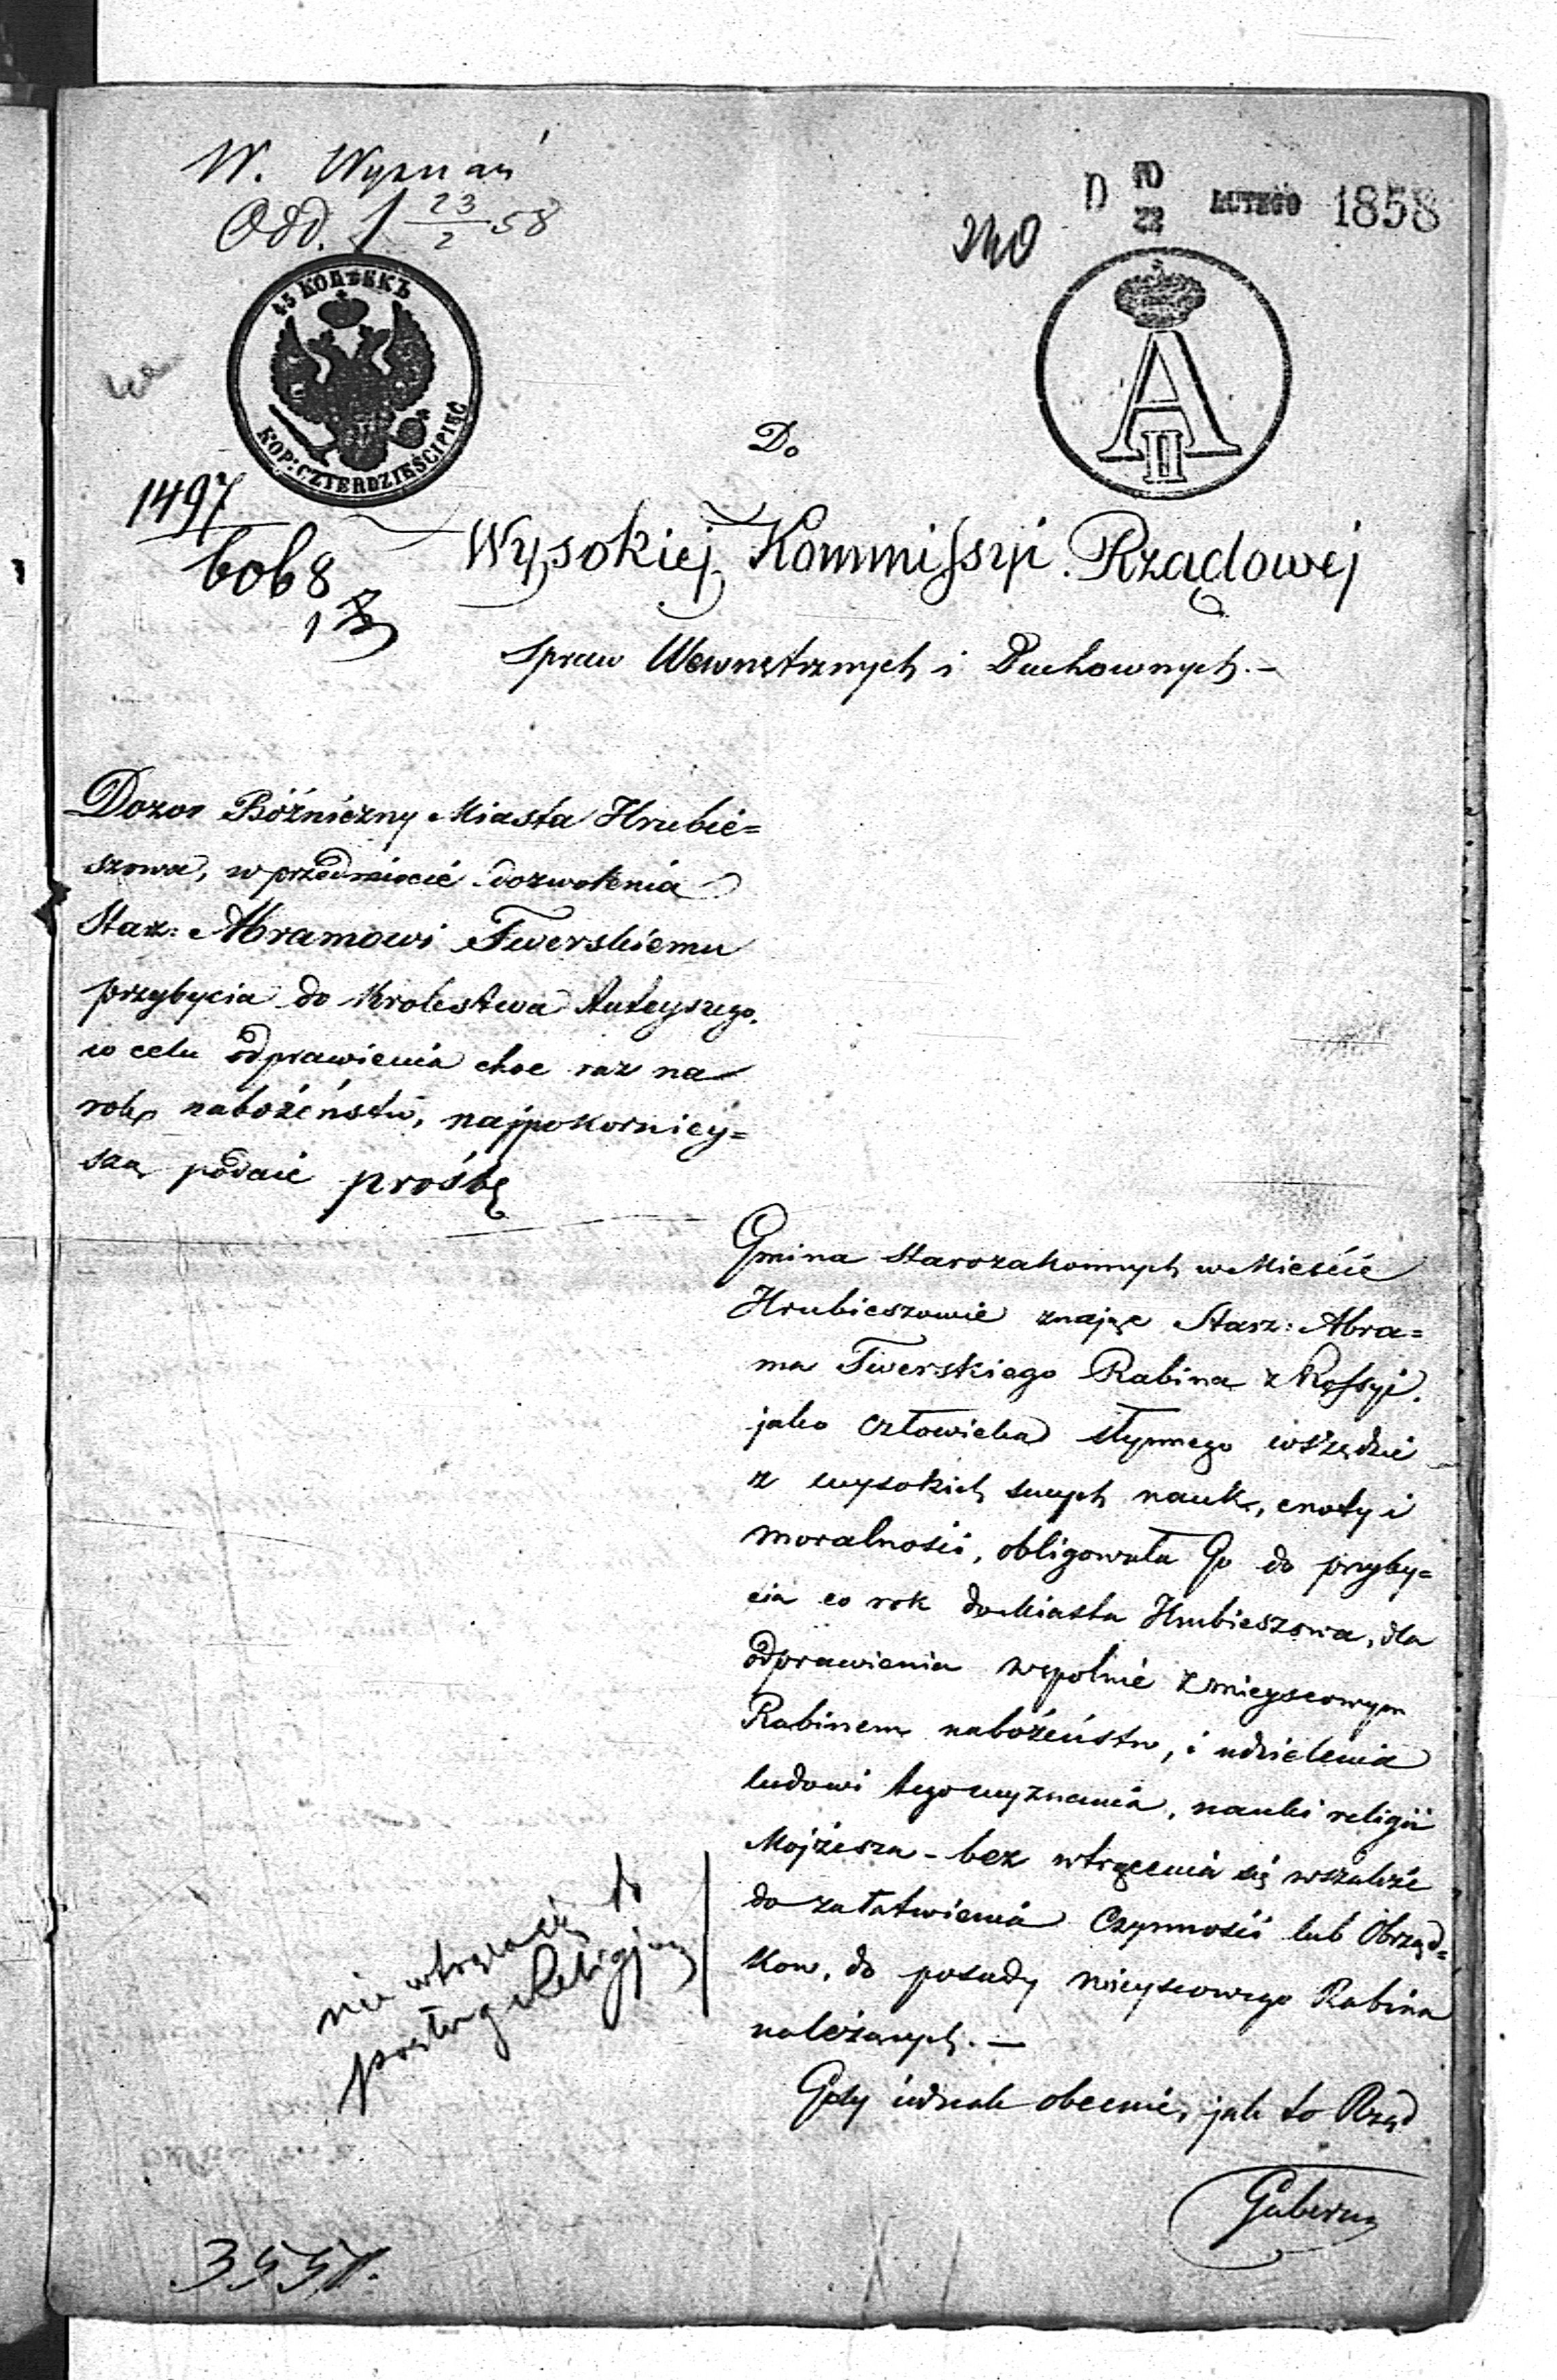 W. Wyznań
Odd. 1 23/2 58
D 10/22 LUTEGO 1858
240
45 КОПѢЕКЪ
KOP: CZTERDZIEŚCI PIĘĆ
A II
1497
6068
Do
Wysokiej Kommissyi Rządowej
Spraw Wewnętrznych i Duchownych. —
Dozor Bóźniczny Miasta Hrubie=
szowa, w przedmiocie dozwolenia
Staz: Abramowi Twerskiemu
przybycia do Krolestwa tuteyszego,
w celu odprawienia choc raz na
rok nabożeństw, najpokorniey=
szą podaie prośbę
Gmina Starozakonnych w Mieście
Hrubieszowie znając Starz: Abra=
ma Twerskiego Rabina z Rossyi.
jako człowieka słynnego wszędzie
z wysokich swych nauk, cnoty i
moralności, obligowała Go do przyby=
cia co rok do Miasta Hrubieszowa, dla
odprawienia wspolnie z mieyscowym
Rabinem nabożeństw, i udzielenia
ludowi tego wyznania, nauki religii
Mojżesza - bez wtrącenia się wszakże
do załatwienia Czynności lub Obrząd=
kow, do posady mieyscowego Rabina
należących. —
nie wtrącać się do
posług Religijnych
Gdy iednak obecnie, jak to Rząd
Guberny
3557.